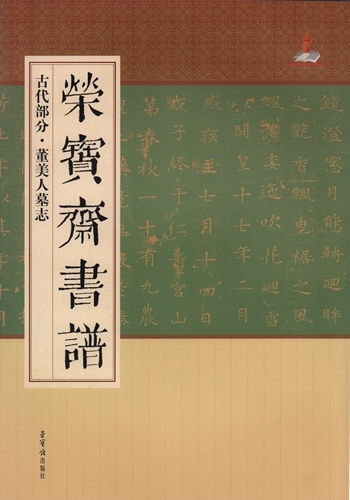 榮寶齋書譜
古代部分 董美人墓志
鏡澄窻月態轉迴
之艷香飄曳裾之風
委迤吹花迴雪
皇十七年二月
感疾至七月十四日
戊子終於仁壽宮山
第春秋一十有九農
榮寶齋出版社